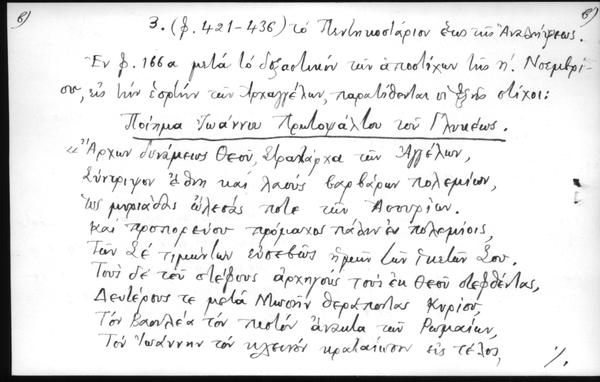 β) β)
3. (φ. 421-436) τό Πεντηκοστάριον ἕως τῆς Ἀναλήψεως.
Ἐν φ. 166α μετά τό δοξαστικόν τῶν ἀποστίχων τῆς η΄. Νοεμβρί-
ου, εἰς τήν ἑορτήν τῶν Ἀρχαγγέλων, παρατίθενται οἱ ἑξῆς στίχοι:
Ποίημα Ἰωάννου Πρωτοψάλτου τοῦ Γλυκέως.
«Ἄρχων δυνάμεως Θεοῦ, Στρατάρχα τῶν Ἀγγέλων,
Σύντριψον ἔθνη καί λαούς βαρβάρων πολεμίων,
ὡς μυριάδας ὤλεσάς ποτε τῶν Ἀσσυρίων.
καί προπορεύου πρόμαχος πάλιν ἐν πολεμίοις,
Τῶν Σέ τιμώντων εὐσεβῶς ἡμῶν τῶν ἱκετῶν Σου.
Τούς δέ τοῦ στέφους ἀρχηγούς τούς ἐκ Θεοῦ στεφθέντας,
Δευτέρους τε μετά Μωσῆν θεράποντας Κυρίου,
Τόν βασιλέα τόν πιστόν ἄνακτα τῶν Ρωμαίων,
Τόν Ἰωάννην τόν κλεινόν κραταίωσον εἰς τέλος,
./.